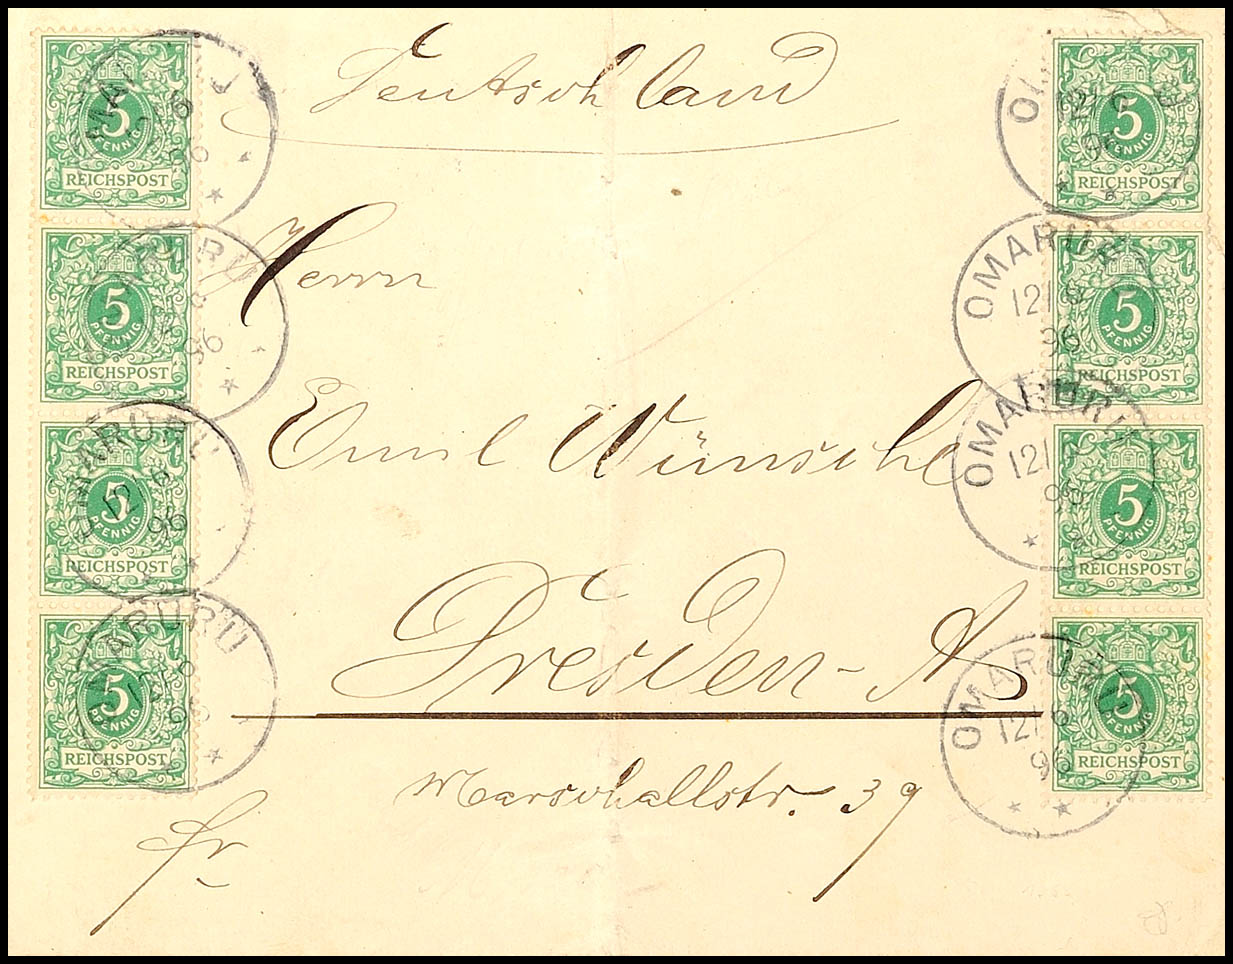 Deutschland
Herrn
Emil Wünsche
Dresden-A
Marschallstr. 39
fr.
5
PFENNIG
REICHSPOST
5
PFENNIG
REICHSPOST
5
PFENNIG
REICHSPOST
5
PFENNIG
REICHSPOST
5
PFENNIG
REICHSPOST
5
PFENNIG
REICHSPOST
5
PFENNIG
REICHSPOST
5
PFENNIG
REICHSPOST
OMARURU
12/6
96
OMARURU
96
OMARURU
12/6
96
OMARURU
12/6
96
OMARURU
12/6
96
OMARURU
12/6
96
OMARURU
12/6
96
OMARURU
12/6
96